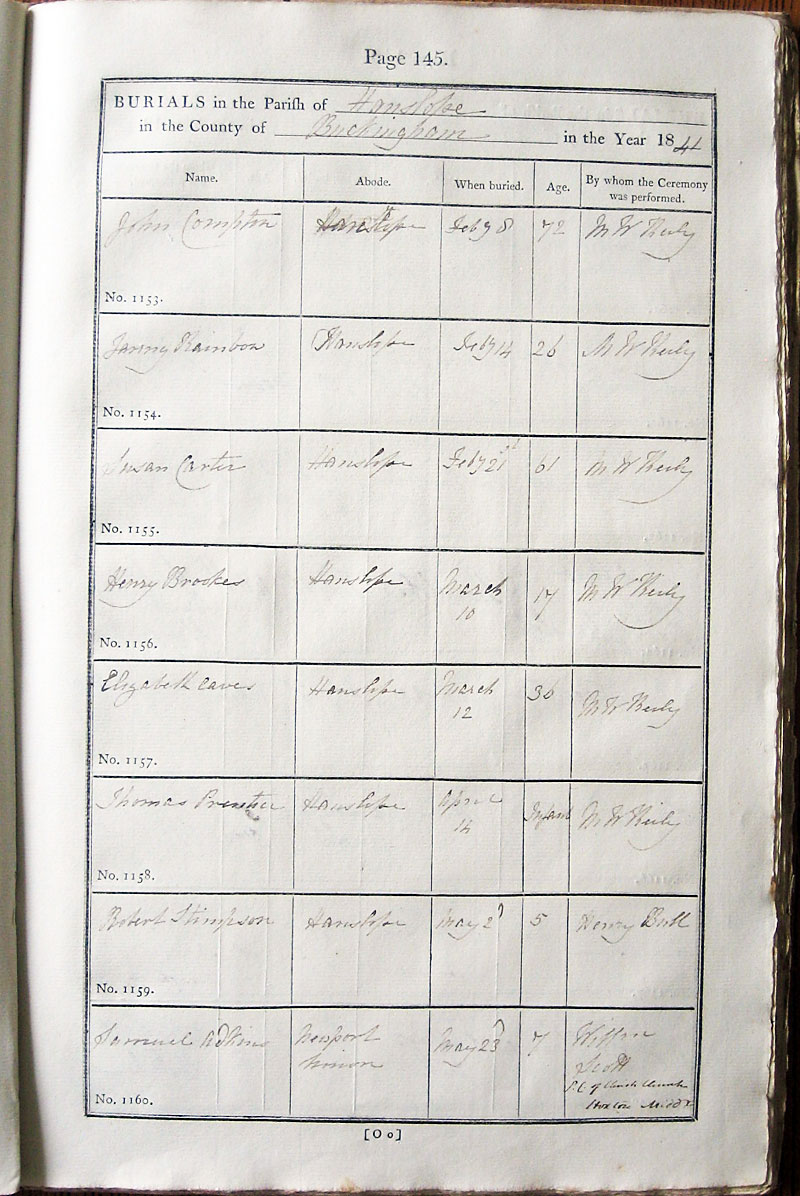 Page 145.
BURIALS in the Parish of Hanslope
in the County of Buckingham in the Year 1841
Name. Abode. When buried. Age. By whom the Ceremony was performed.
John Compton Hanslope Feby 8 72 M W
No. 1153.
Rainbow Hanslope Feby 14 26 M W
No. 1154.
Susan Carter Hanslope Feby 21st 61 M W
No. 1155.
Henry Brookes Hanslope March 10 17 M W
No. 1156.
Elizabeth eaves Hanslope March 12 30 M W
No. 1157.
Thomas Prentice Hanslope April 14 Infant M W
No. 1158.
Robert Stimpson Hanslope May 2 5 Henry Bull
No. 1159.
Samuel Adkins Newport May 23 7
Union Scott
P.C of Christ Church
Hoxton Middx
No. 1160.
[O o]